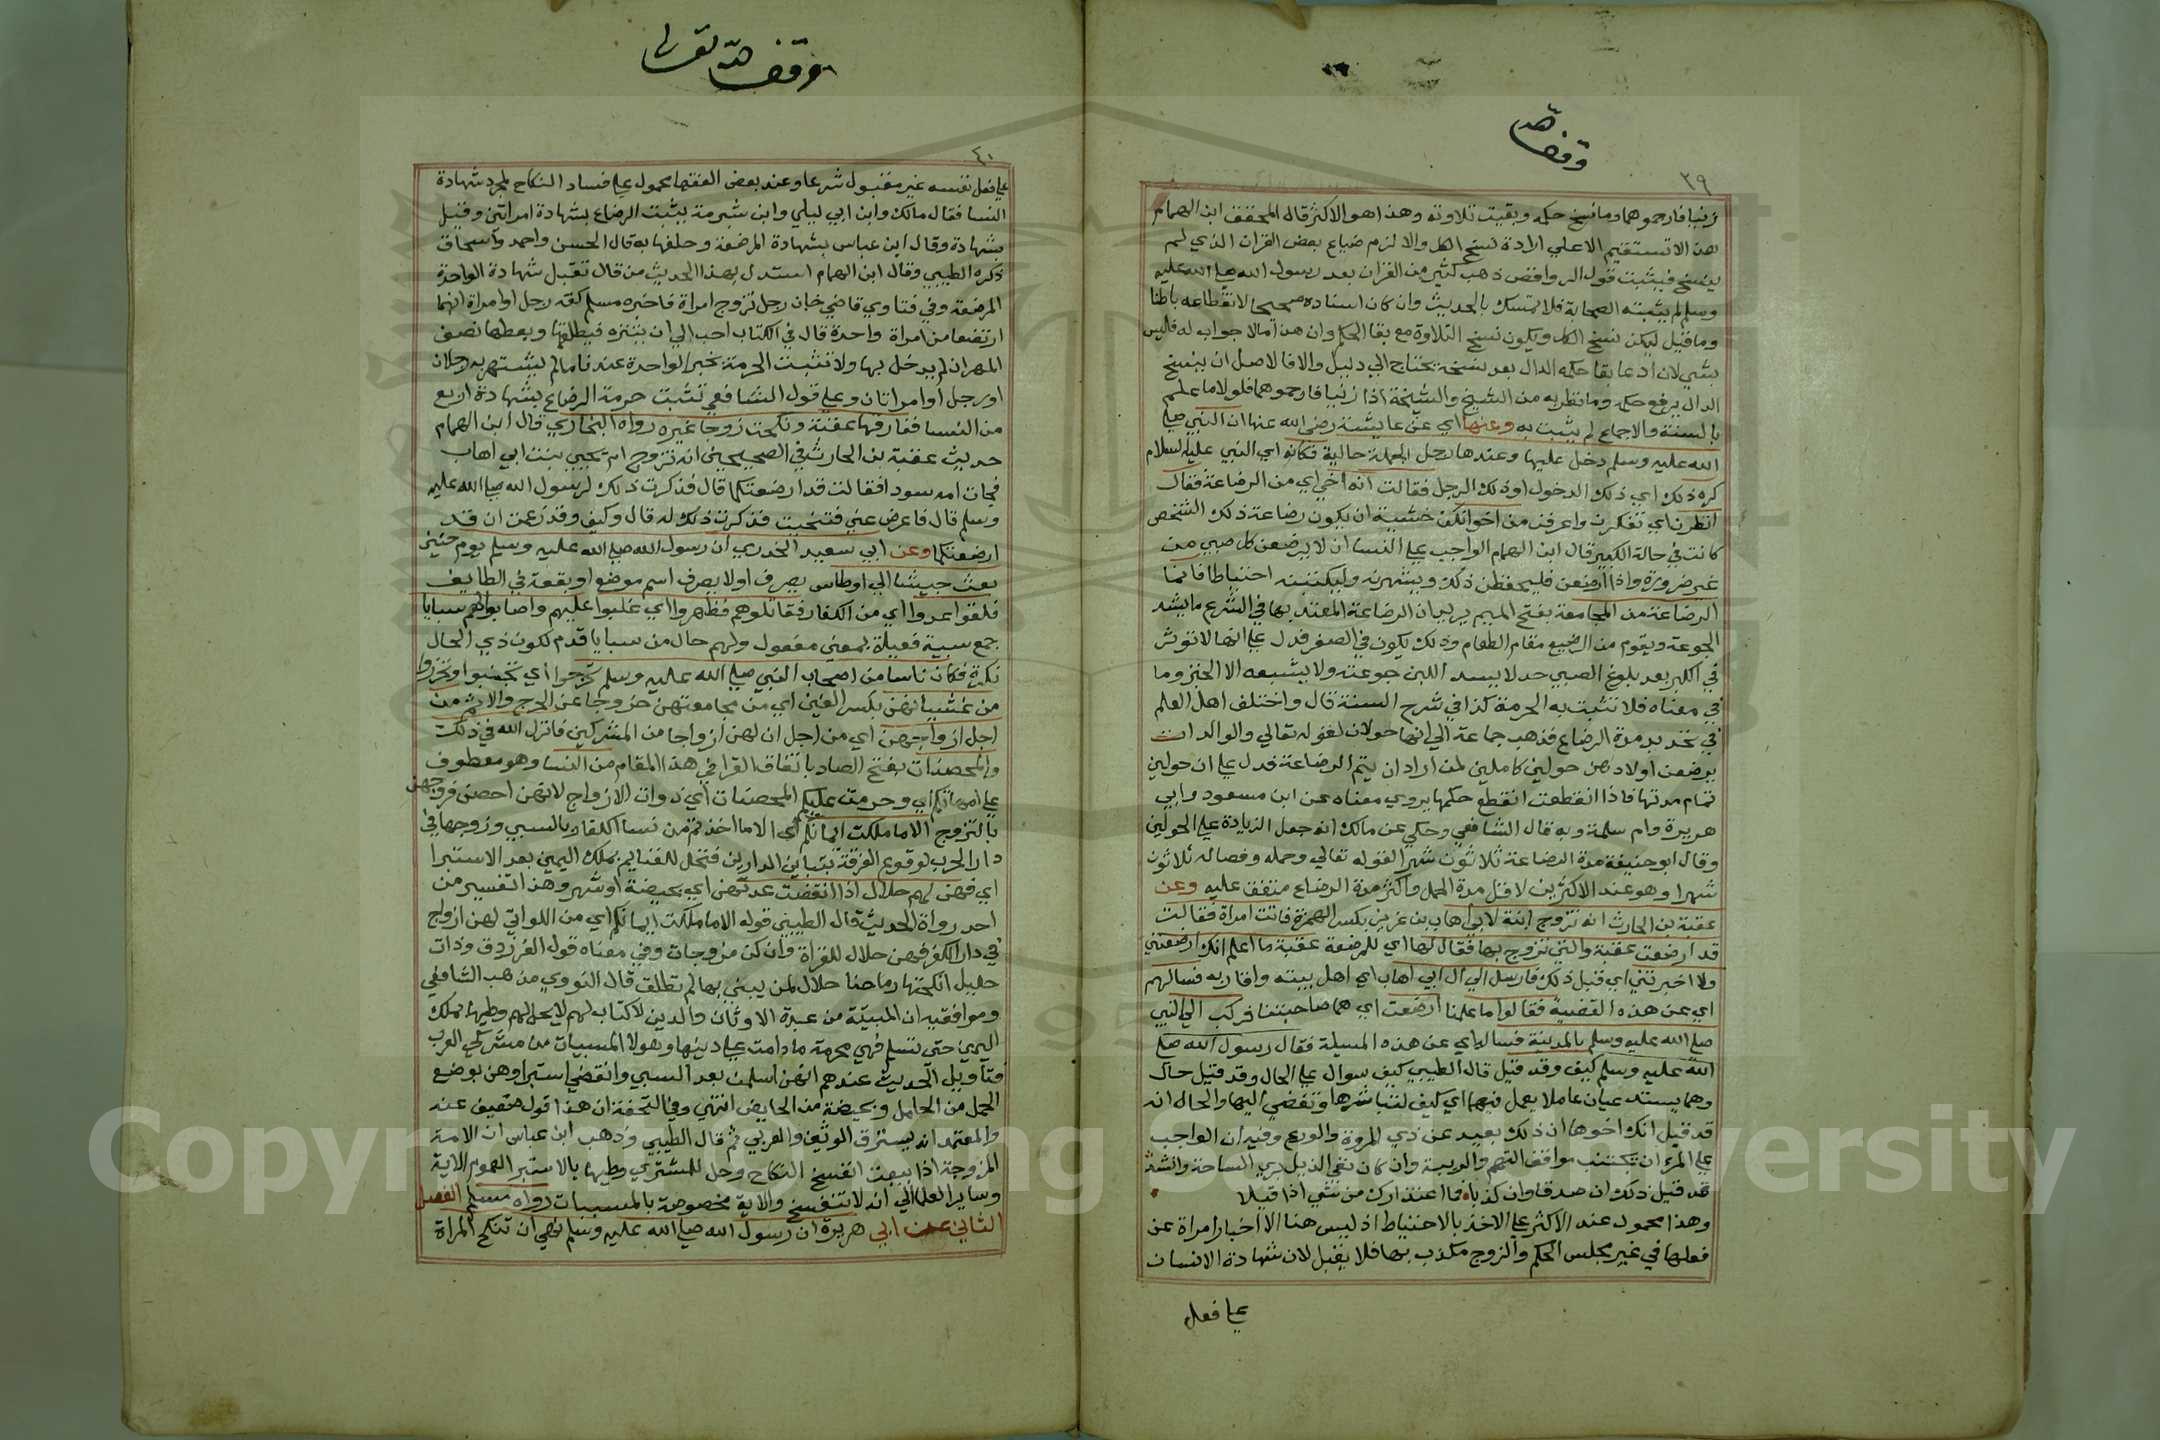 وقف لله
٣٩
زنيا فارجموهما وما نسخ حكمه وبقيت تلاوته وهذا هو الاكثر قال المحقق ابن الهمام
هذا لا تستقيم الا على ارادة نسخ الكل والا لزم ضياع بعض القران الذي لم
ينسخ فيثبت قول الروافض ذهب كثير من القران بعد رسول الله صلى الله عليه
وسلم لم يثبته الصحابة فلا تمسك بالحديث وان كان اسناده صحيحا لانقطاعه باطنا
وما قيل ليكن نسخ الكل ويكون نسخ التلاوة مع بقا الحكم وان هذا مما لا جواب له فليس
بشي لان ادعا بقا حكمه الدال بعد نسخه يحتاج الي دليل والا فالاصل ان ينسخ
الدال يرفع حكمه وما نظر به من الشيخ والشيخة اذا زنيا فارجموهما فلولا ما علم
بالسنة والاجماع لم يثبت به وعنها اي عن عايشة رضى الله عنها ان النبي صلى
الله عليه وسلم دخل عليها وعندها رجل الجملة حالية فكانه اي النبي عليه السلام
كره ذلك اي ذلك الدخول او ذلك الرجل فقالت انه اخي اي من الرضاعة فقال
انظرن اي تفكرن واعرفن من اخوانكن خشية ان يكون رضاعة ذلك الشخص
كانت في حالة الكبر قال ابن الهمام الواجب على النسا ان لا يرضعن كل صبي من
غير ضرورة واذا ارضعن فليحفظن ذلك ويشهرنه وليكتبنه احتياطا فانما
الرضاعة من المجامعة بفتح الميم يريد ان الرضاعة المعتد بها في الشرع ما يسد
الجوعة ويقوم من الرضيع مقام الطعام وذلك يكون في الصغر فدل على انها لا توثر
في الكبر بعد بلوغ الصبي حد لا يسد اللبن جوعته ولا يشبعه الا الخبز وما
في معناه فلا تثبت به الحرمة كذا في شرح السنة قال واختلف اهل العلم
في تحديد مدة الرضاع فذهب جماعة الى انها حولان لقوله تعالي والوالدات
يرضعن اولادهن حولين كاملين لمن اراد ان يتم الرضاعة فدل على ان حولين
تمام مدتها فاذا انقطعت انقطع حكمها يروي معناه عن ابن مسعود وابي
هريرة وام سلمة وبه قال الشافعي وحكي عن مالك انه جعل الزيادة على الحولين
وقال ابو حنيفة مدة الرضاعة ثلاثون شهرا لقوله تعالي وحمله وفصاله ثلاثون
شهرا وهو عند الاكثرين لاقل مدة الحمل واكثر مدة الرضاع متفق عليه وعن
عقبة بن الحارث انه تزوج ابنة لابي اهاب بن عزيز بكسر الهمزة فاتت امراة فقالت
قد ارضعت عقبة والتي تزوج بها فقال لها اي للمرضعة عقبة ما اعلم انك ارضعتني
ولا اخبرتني اي قبل ذلك فارسل الي ال ابي اهاب اي اهل بيته واقاربه فسالهم
اي عن هذه القضية فقالوا ما علمنا ارضعت اي هما صاحبتنا فركب الي النبي
صلى الله عليه وسلم بالمدينة فساله اي عن هذه المسيلة فقال رسول الله صلى
الله عليه وسلم كيف وقد قيل قال الطيبي كيف سوال على الحال وقد قيل حال
وهما يستدعيان عاملا يعمل فيهما اي كيف تباشرها وتفضي اليها والحال انه
قد قيل انك اخوها ان ذلك بعيد عن ذي المروة والورع وفيه ان الواجب
على المرء ان تجتنب مواقف التهم والريبة وان كان نقي الذيل بري الساحة وانشد
قد قيل ذلك ان صدقا وان كذبا فما اعتذارك من شي اذا قيلا
وهذا محمول عند الاكثر على الاخذ بالاحتياط اذ ليس هنا الا اخبار امراة عن
فعلها في غير مجلس الحكم والزوج مكذب بها فلا يقبل لان شهادة الانسان
على فعل
وقف لله تعالى
٤٠
على فعل نفسه غير مقبول شرعا وعند بعض الفقها محمول على فساد النكاح لمجرد شهادة
النسا فقال مالك وابن ابي ليلي وابن شبرمة يثبت الرضاع بشهادة امراتين وقيل
بشهادة وقال ابن عباس بشهادة المرضعة وحلفها به قال الحسن واحمد واسحاق
ذكره الطيبي وقال ابن الهمام استدل بهذا الحديث من قال تقبل شهادة الواحدة
المرضعة وفي فتاوي قاضي خان رجل تزوج امراة فاخبره مسلم ثقة رجل او امراة انهما
ارتضعا من امراة واحدة قال في الكتاب احب الي ان يتنزه فيطلقها ويعطها نصف
المهر ان لم يدخل بها ولا تثبت الحرمة بخبر الواحدة عندنا ما لم يشهد به رجلان
او رجل او امراتان وعلى قول الشافعي تثبت حرمة الرضاع بشهادة اربع
من النسا ففارقها عقبة ونكحت زوجا غيره رواه البخاري قال ابن الهمام
حديث عقبة بن الحارث في الصحيحين انه تزوج ام يحيي بنت ابي اهاب
فجات امه سودا فقالت قد ارضعتكما قال فذكرت ذلك لرسول الله صلى الله عليه
وسلم قال فاعرض عني فتنحيت فذكرت ذلك له قال وكيف وقد زعمت ان قد
ارضعتكما وعن ابي سعيد الخدري ان رسول الله صلى الله عليه وسلم يوم حنين
بعث جيشا الي اوطاس يصرف اولا يصرف اسم موضع او بقعة في الطايف
فلقوا عدوا اي من الكفار فقاتلوهم فظهروا اي غلبوا عليهم واصابوا لهم سبايا
جمع سبية فعيلة بمعني مفعول ولهم حال من سبايا قدم لكون ذي الحال
نكرة فكان ناسا من اصحاب النبي صلى الله عليه وسلم تحرجوا اي تجنبوا وتحرزوا
من غشيانهن بكسر الغين اي من مجامعتهن خروجا عن الحرج والاثم من
اجل ازواجهن اي من اجل ان لهن ازواجا من المشركين فانزل الله في ذلك
والمحصنات بفتح الصاد باتفاق القرا في هذا المقام من النسا وهو معطوف
على امهاتكم اي وحرمت عليكم المحصنات اي ذوات الازواج لانهن احصن فروجهن
بالتزوج الا ما ملكت ايمانكم اي الا ما اخذتم من نسا الكفار بالسبي وزوجها في
دار الحرب لوقوع الفرقة بتباين الدارين فتحل للغنايم بملك اليمين بعد الاستبرا
اي فهن لهم حلال اذا انقضت عدتهن اي بحيضة او شهر وهذا تفسير من
احد رواة الحديث قال الطيبي قوله الا ما ملكت ايمانكم اي من اللواتي لهن ازواج
في دار الكفر فهن حلال للغزاة وان كن مزوجات وفي معناه قول الفرزدق وذات
حليل انكحتها رماحنا حلال لمن يبني بها لم تطلق قال النووي مذهب الشافعي
وموافقيه ان المسبيّة من عبدة الاوثان والذين لا كتاب لهم لا يحل لهم وطيها بملك
اليمين حتى تسلم فهي محرمة ما دامت على دينها وهولا المسبيات من مشركي العرب
فتاويل الحديث عندهم انهن اسلمن بعد السبي وانقضي استبراوهن بوضع
الحمل من الحامل وبحيضة من الحايض انتهي وفي التحفة ان هذا قول ضعيف عند
والمعتمد انه يسترق الوثني والعربي ثم قال الطيبي وذهب ابن عباس ان الامة
المزوجة اذا بيعت انفسخ النكاح وحل للمشتري وطيها بالاستبرا لعموم الاية
وساير العلما الي انه لا تنفسخ والاية مخصوصة بالمسبيات رواه مسلم الفصل
الثاني عن ابي هريرة ان رسول الله صلى الله عليه وسلم نهي ان تنكح المراة
Copyright © King Saud University